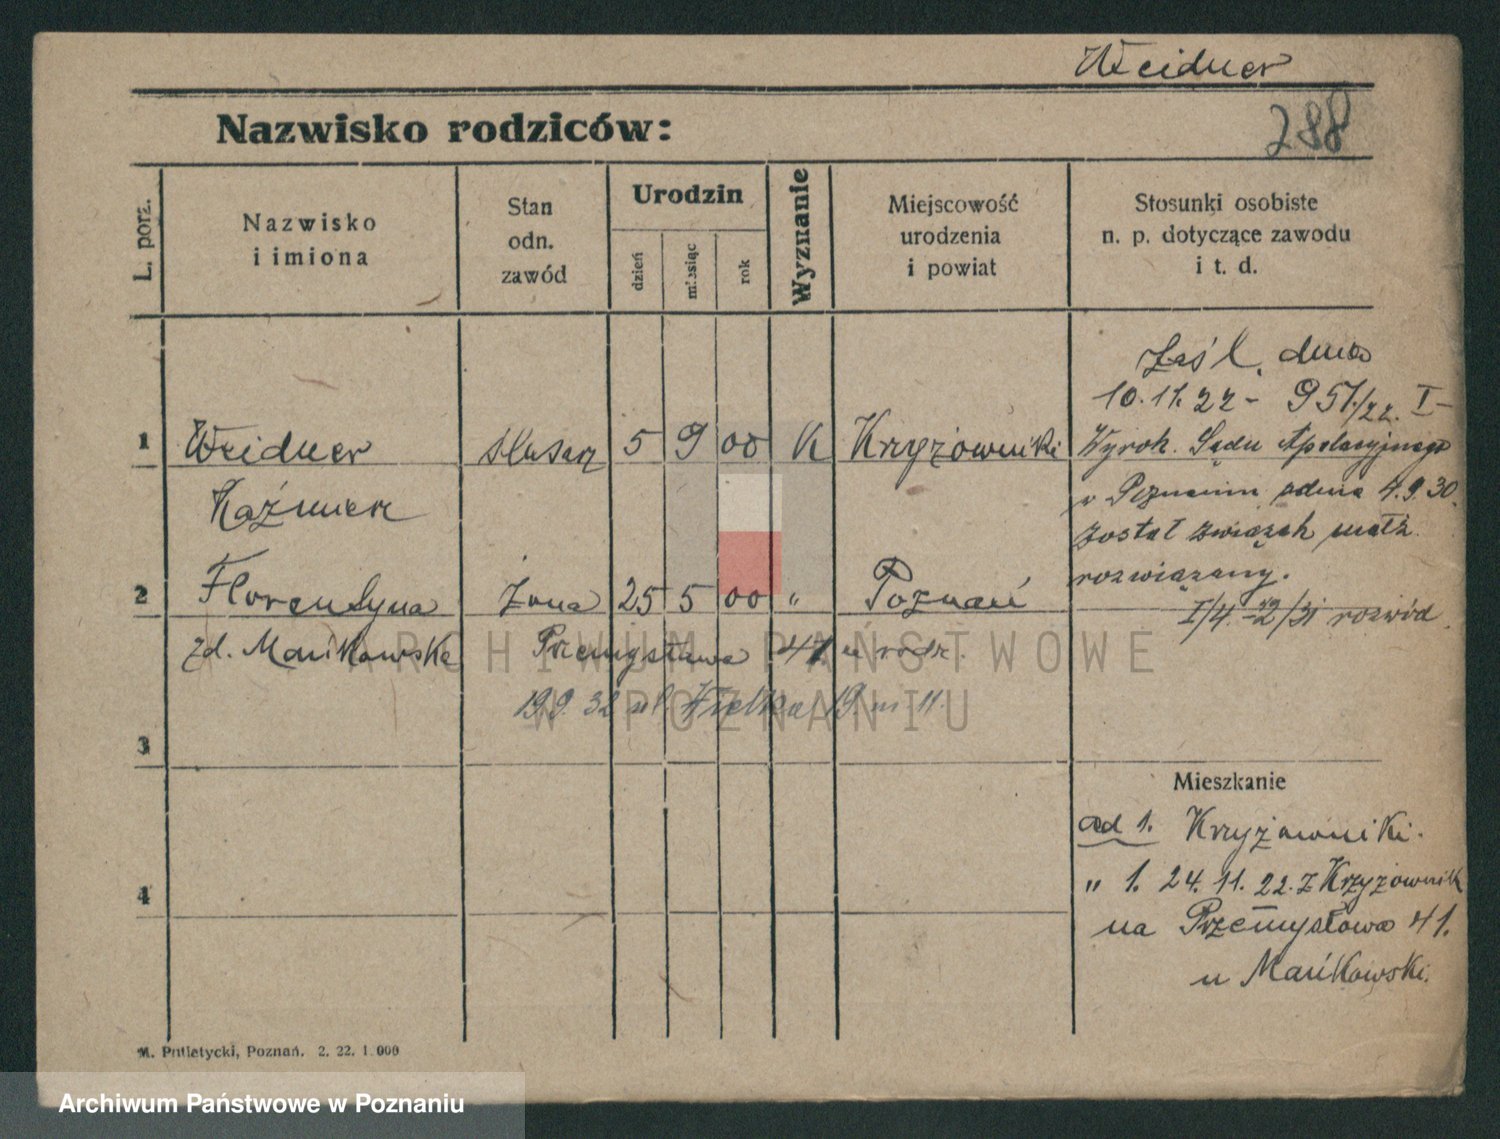 Weidner
288
Nazwisko rodziców:
L. porz.
Nazwisko
i imiona
Stan
odn.
zawód
Urodzin
dzień
miesiąc
rok
Wyznanie
Miejscowość
urodzenia
i powiat
Stosunki osobiste
n. p. dotyczące zawodu
i t. d.
Zaśl. dnia
10.11.22 - 951/22. I -
1 Weidner ślusarz 5 9 00 K Krzyżowniki
Kaźmierz
2 Florentyna żona 25 5 00 " Poznań
zd. Mańkowska Przemysłowa 41 u rodz.
19.9.32 ul Wielka 19 m 11.
Wyrok. Sądu Apelacyjnego
w Poznaniu zdnia 4.9.30.
został związek małż.
rozwiązany.
I/4. /31 rozwód.
3
4
Mieszkanie
ad 1. Krzyżowniki.
" 1. 24.11.22. z Krzyżownik
na Przemysłowa 41.
u Mańkowski.
M. Putiatycki, Poznań. 2. 22. 1.000
ARCHIWUM PAŃSTWOWE
W POZNANIU
Archiwum Państwowe w Poznaniu